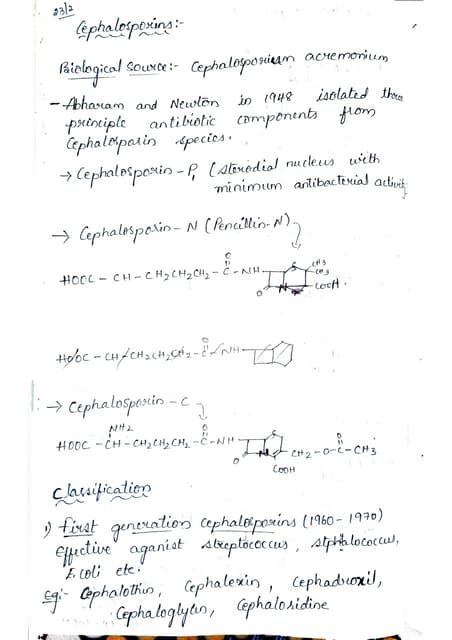 23/2
Cephalosporins:-
Biological Source:- Cephalosporium acremonium
- Abharam and Newton in 1948 isolated three
principle antibiotic components from
Cephalosparin species.
→ Cephalosporin - P, (sterodial nucleus with
minimum antibacterial activity
→ Cephalosporin - N (Pencillin-N)
O
HOOC - CH - CH2CH2CH2 - C - NH
S CH3
CH3
O N COOH.
HOOC - CH CH2CH2CH2 - C NH
O
→ Cephalosporin - C
NH2 O
HOOC - CH - CH2CH2CH2 - C - NH
S
O N CH2 - O - C - CH3
O
COOH
Classification
1) first generation cephalosporins (1960 - 1970)
Effective aganist streptococcus, stphalococcus,
E.coli etc.
Eg:- Cephalothin, Cephalexin, Cephadroxil,
Cephaloglyin, Cephalosidine